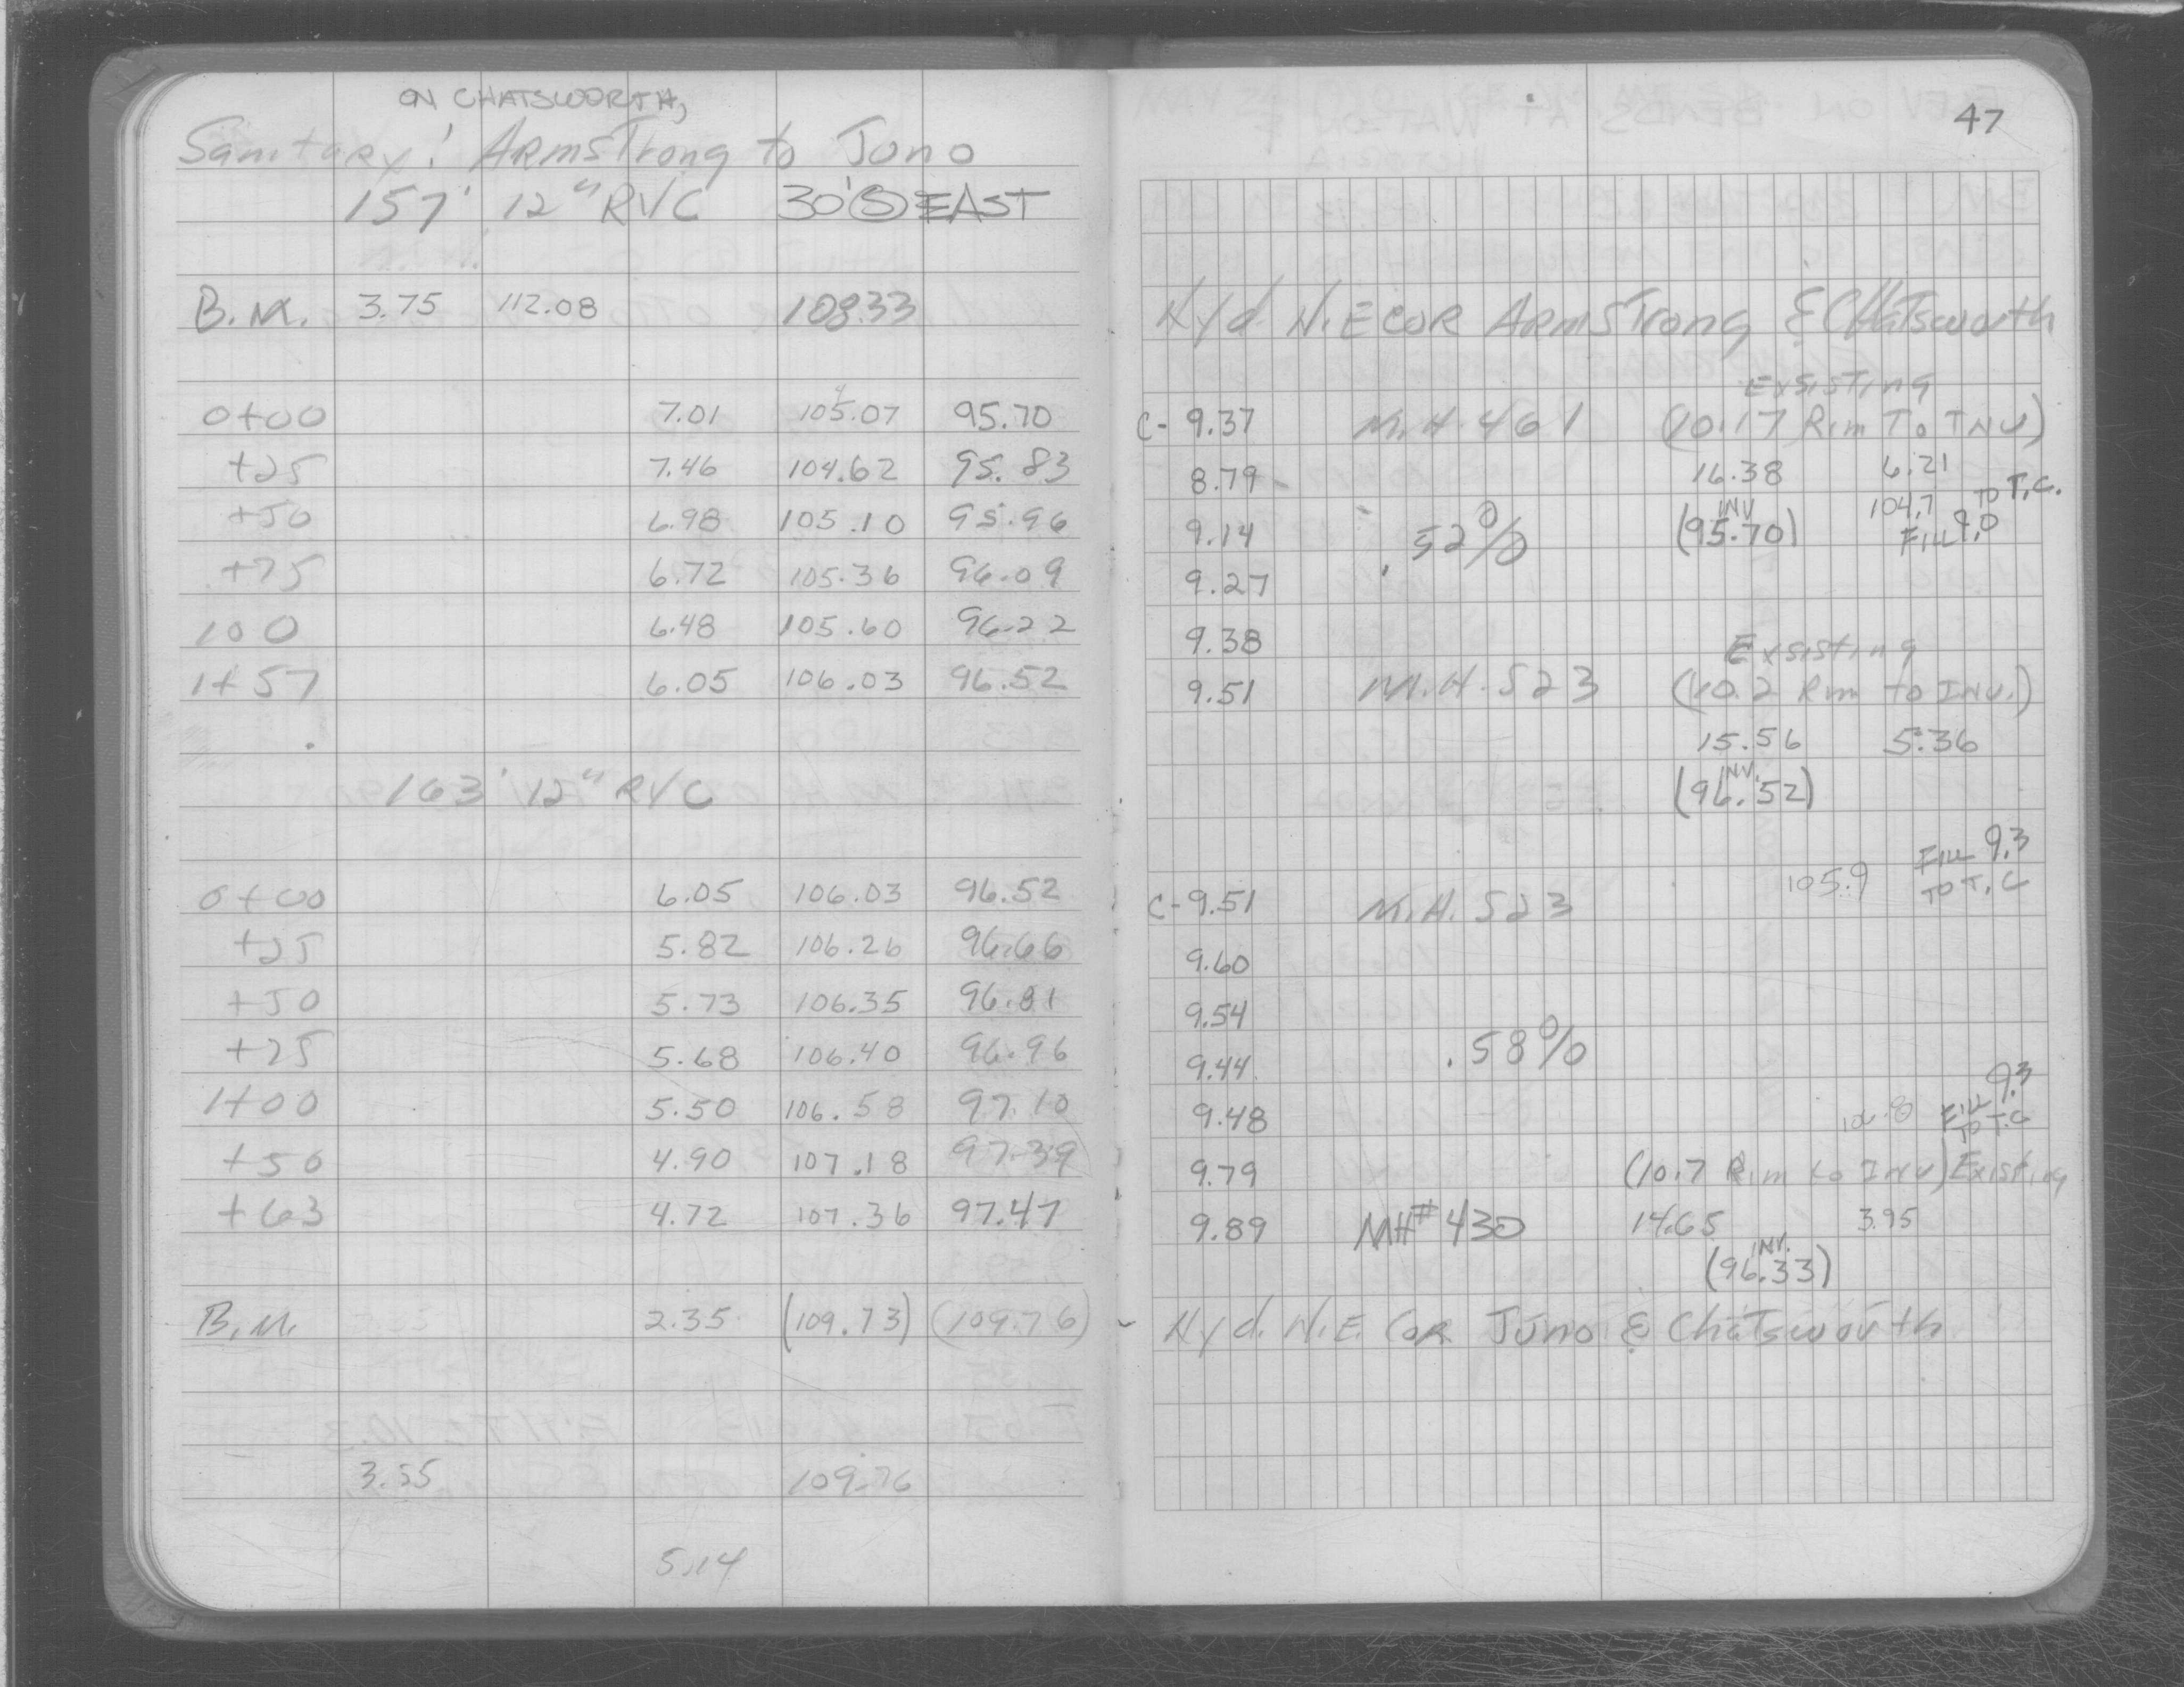 ON CHATSWORTH,
Sanitary: ArmsTrong to Juno
157' 12" RVC 30'(S) EAST
B.M. 3.75 112.08 108.33
0+00 7.01 105.07 95.70
+25 7.46 104.62 95.83
+50 6.98 105.10 95.96
+75 6.72 105.36 96.09
100 6.48 105.60 96.22
1+57 6.05 106.03 96.52
163' 12" RVC
0+00 6.05 106.03 96.52
+25 5.82 106.26 96.66
+50 5.73 106.35 96.81
+75 5.68 106.40 96.96
1+00 5.50 106.58 97.10
+50 4.90 107.18 97.39
+63 4.72 107.36 97.47
B.M. 2.35 (109.73) (109.76)
3.55 109.76
5.14
47
Hyd. N.E COR ArmsTrong & CHaTsworth
Exsisting
C- 9.37 M.H. 461 (10.17 Rim To INV)
8.79 16.38 6.21
9.14 .52% INV (95.70) 104.7 TO T.C. FILL 9.0
9.27
9.38 Exsisting
9.51 M.H. 523 (10.2 Rim to INV.)
15.56 5.36
INV. (96.52)
105.9 FILL 9.3 TO T.C
C- 9.51 M.H. 523
9.60
9.54
9.44 .58%
9.48 106.8 FILL 9.3 TO T.C
9.79 (10.7 Rim to INV) Existing
9.89 MH# 430 14.65 3.95
INV. (96.33)
Hyd. N.E. Cor Juno & Chatsworth